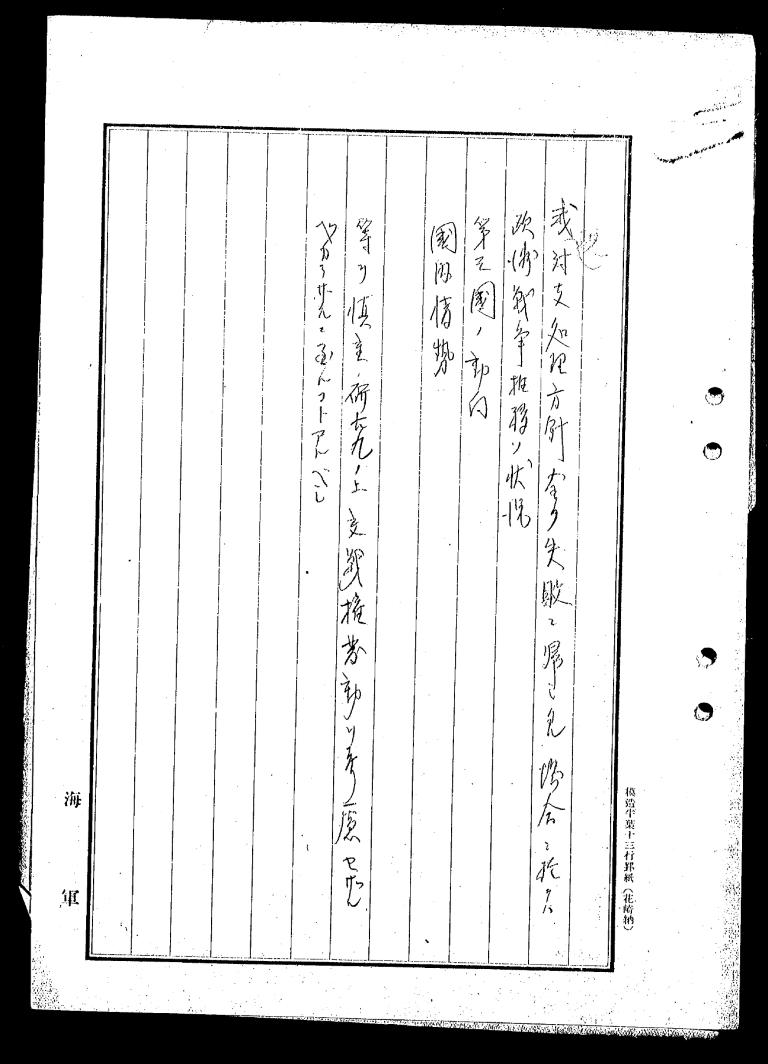 三
我対支処理方針全ク失敗ニ帰シタル場合ニ於テハ
欧洲戦争推移ノ状況
第三國ノ動向
國内情勢
等ヲ慎重研究ノ上交戦権発動ヲ考慮セザル
ベカラザルニ至ルコトアルベシ
海軍
模造半葉十三行罫紙（花崎納）